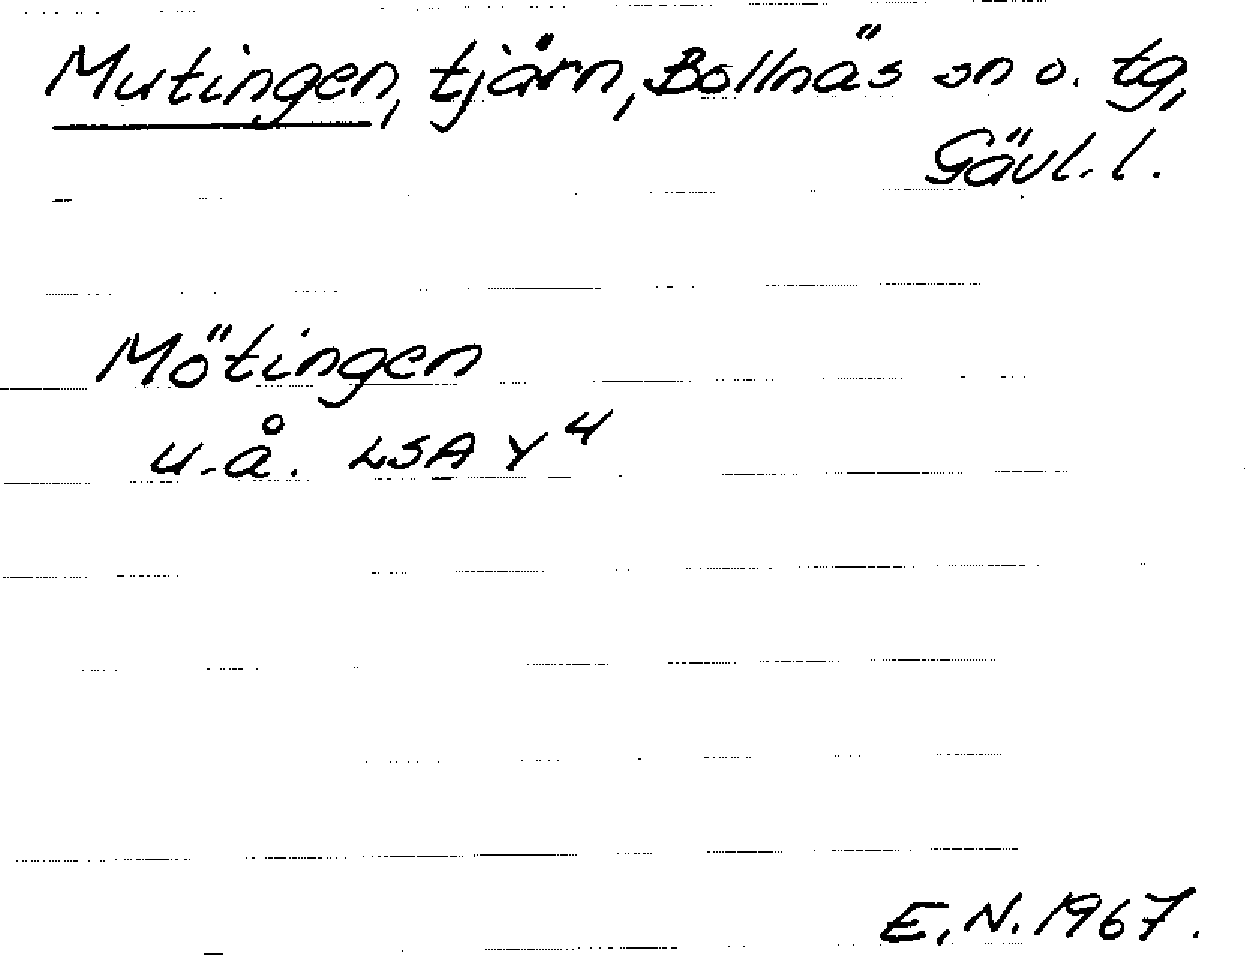 Mutingen, tjärn, Bollnäs sn o. tg,
Gävl. l.
Mötingen
u. å. LSA Y 4
E. N. 1967.